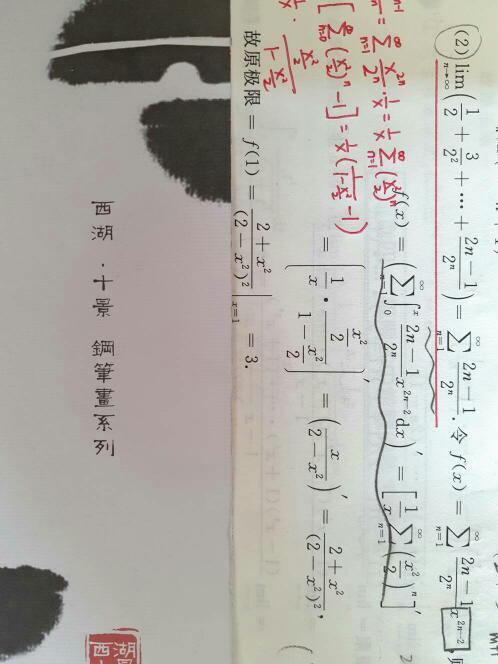 (2) lim_{n→∞}(1/2 + 3/2² + ⋯ + (2n−1)/2ⁿ) = ∑_{n=1}^{∞} (2n−1)/2ⁿ. 令 f(x) = ∑_{n=1}^{∞} (2n−1)/2ⁿ x^{2n−2},
f(x) = (∑_{n=1}^{∞} ∫_0^x (2n−1)/2ⁿ x^{2n−2} dx)′ = [1/x ∑_{n=1}^{∞} (x²/2)ⁿ]′
= (1/x · (x²/2)/(1−x²/2))′ = (x/(2−x²))′ = (2+x²)/(2−x²)²,
故原极限 = f(1) = (2+x²)/(2−x²)² |_{x=1} = 3.
= ∑_{n=1}^{∞} x^{2n}/2ⁿ · 1/x = 1/x ∑_{n=1}^{∞} (x²/2)ⁿ
[∑_{n=0}^{∞} (x²/2)ⁿ − 1] = 1/x (1/(1−x²/2) − 1)
· (x²/2)/(1−x²/2)
西湖·十景 鋼筆畫系列